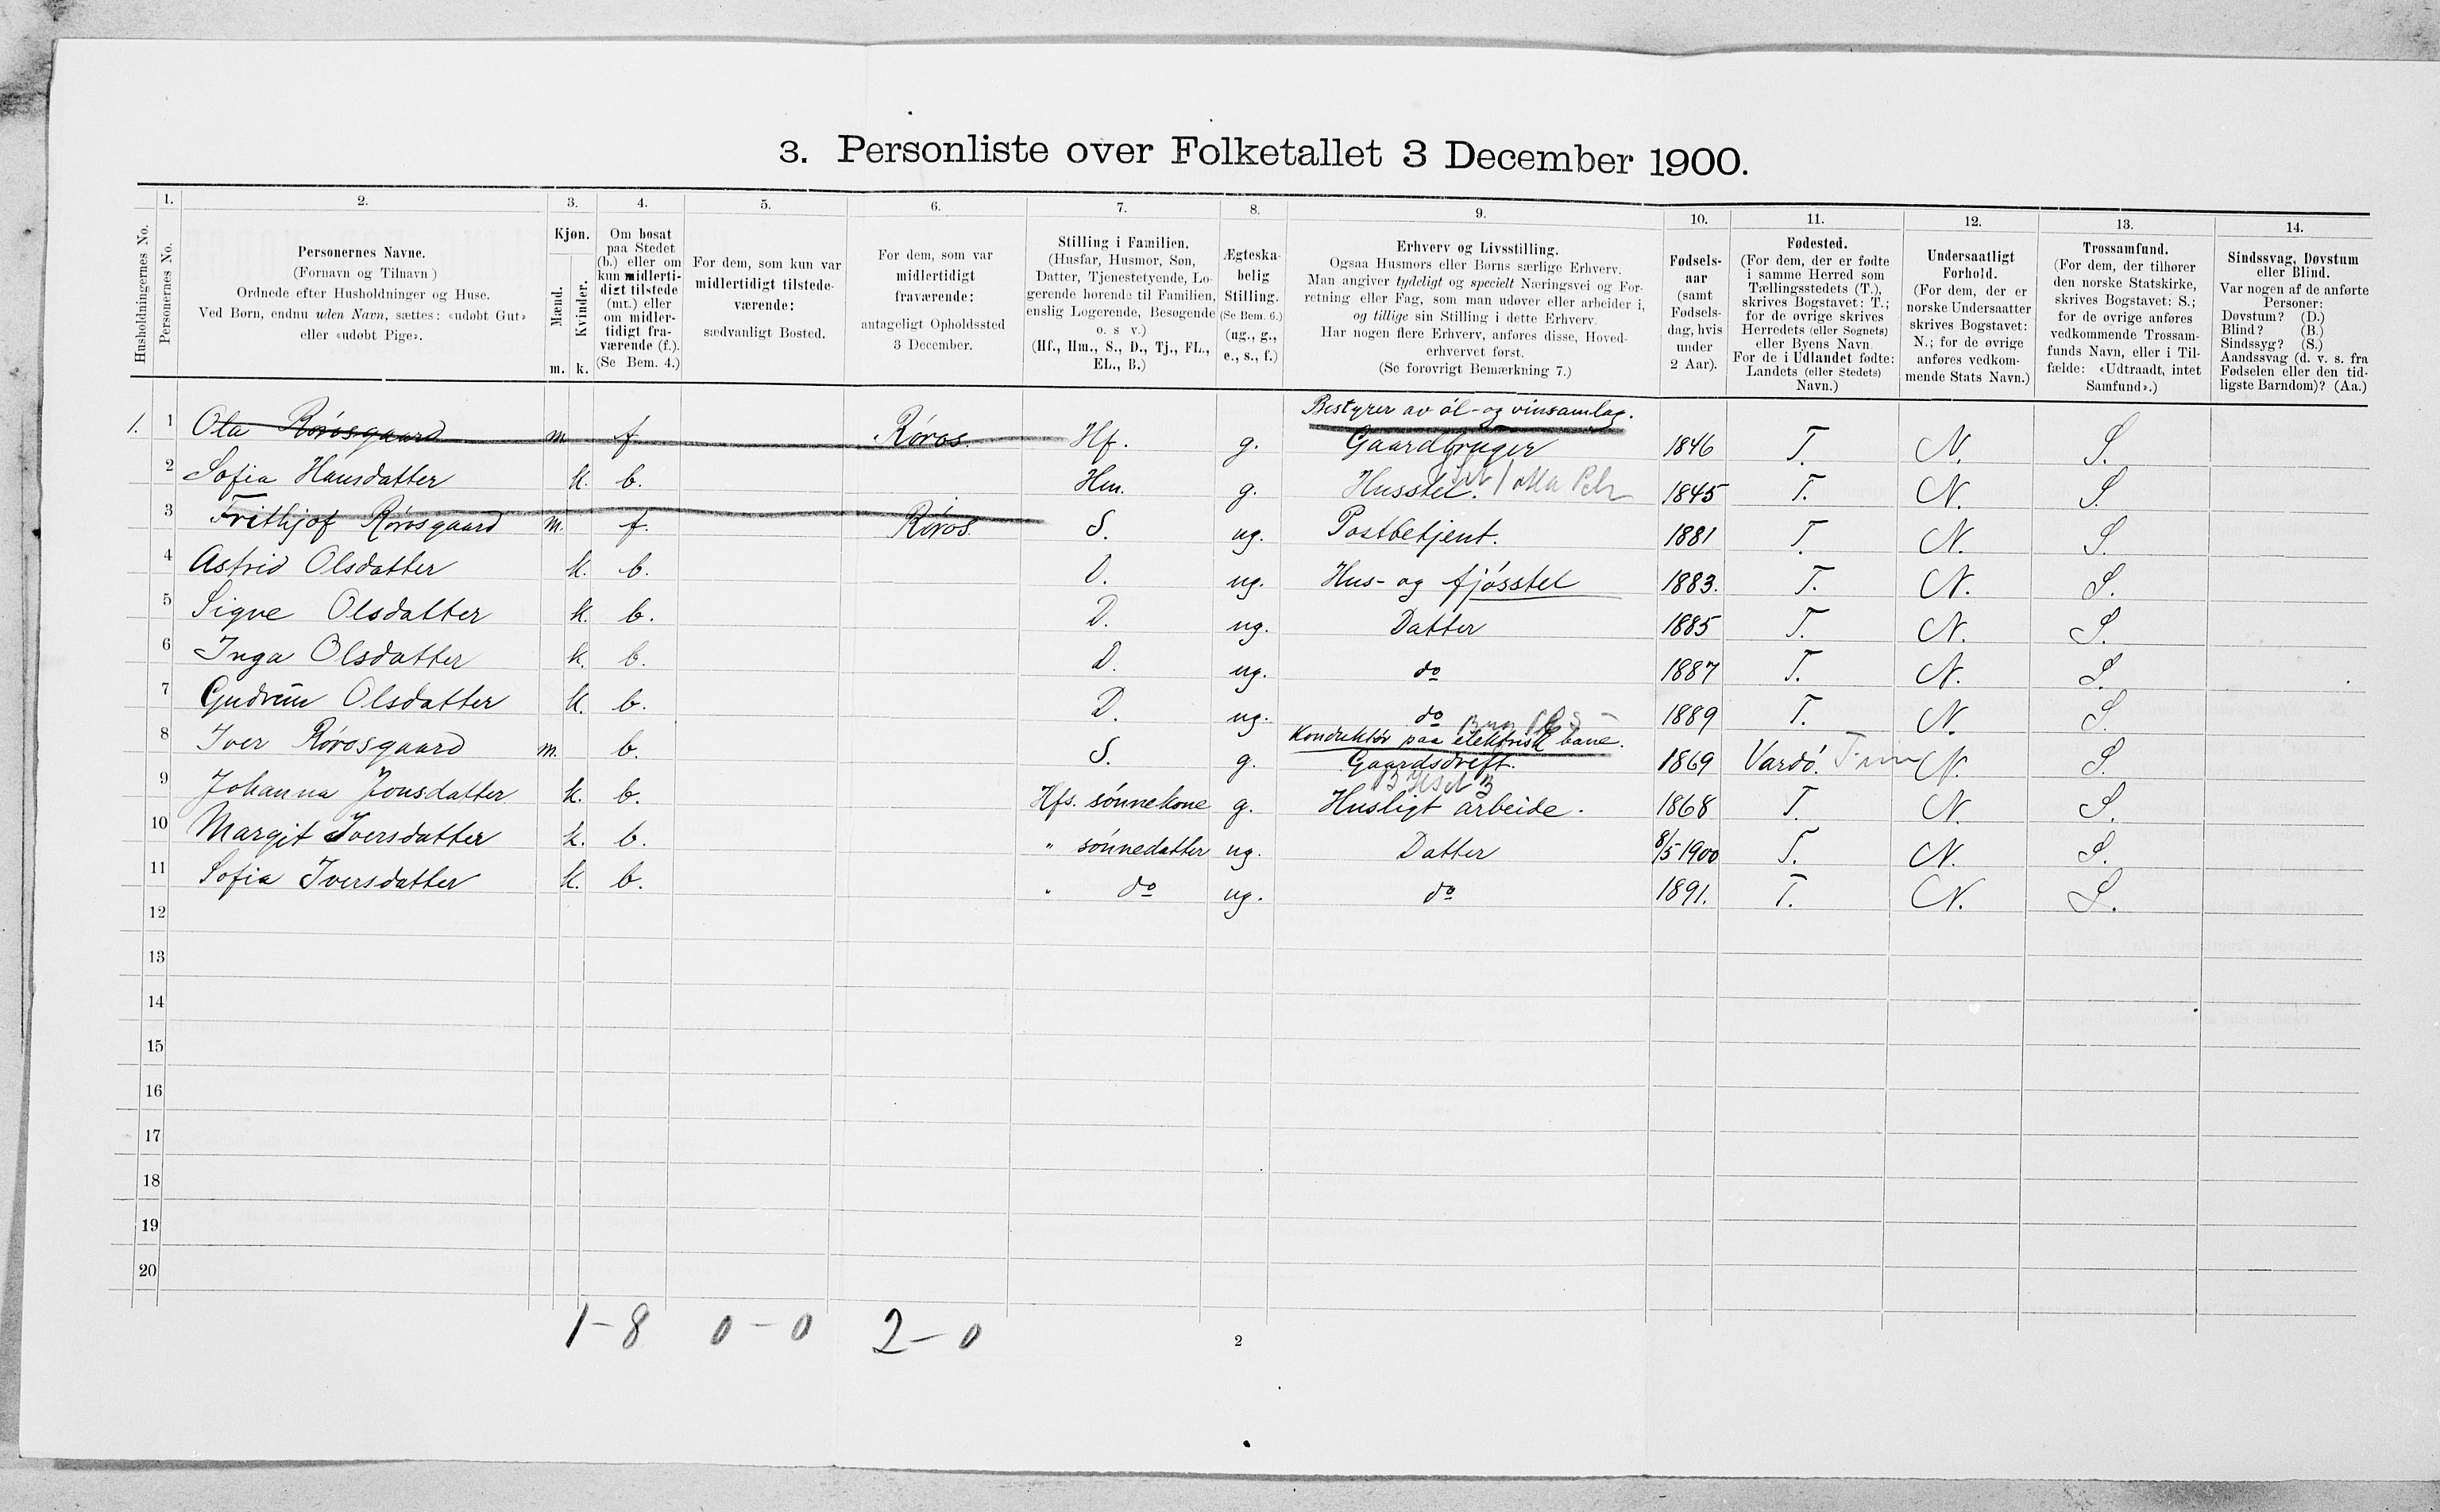 3. Personliste over Folketallet 3 December 1900.
Husholdningernes No.
1.
Personernes No.
2.
Personernes Navne.
(Fornavn og Tilnavn.)
Ordnede efter Husholdninger og Huse.
Ved Børn, endnu uden Navn, sættes: «udøbt Gut»
eller «udøbt Pige».
3.
Kjøn.
Mænd.
Kvinder.
m. k.
4.
Om bosat
paa Stedet
(b.) eller om
kun midlerti-
digt tilstede
(mt.) eller
om midler-
tidigt fra-
værende (f.).
(Se Bem. 4.)
5.
For dem, som kun var
midlertidigt tilstede-
værende:
sædvanligt Bosted.
6.
For dem, som var
midlertidigt
fraværende:
antageligt Opholdssted
3 December.
7.
Stilling i Familien.
(Husfar, Husmor, Søn,
Datter, Tjenestetyende, Lo-
gerende hørende til Familien,
enslig Logerende, Besøgende
o. s v.)
(Hf., Hm., S., D., Tj., FL.,
EL., B.)
8.
Ægteska-
belig
Stilling.
(Se Bem. 6.)
(ug., g.,
e., s., f.)
9.
Erhverv og Livsstilling.
Ogsaa Husmors eller Børns særlige Erhverv.
Man angiver tydeligt og specielt Næringsvei og For-
retning eller Fag, som man udøver eller arbeider i,
og tillige sin Stilling i dette Erhverv.
Har nogen flere Erhverv, anføres disse, Hoved-
erhvervet først.
(Se forøvrigt Bemærkning 7.)
10.
Fødsels-
aar
(samt
Fødsels-
dag, hvis
under
2 Aar).
11.
Fødested.
(For dem, der er fødte
i samme Herred som
Tællingsstedets (T.),
skrives Bogstavet: T.;
for de øvrige skrives
Herredets (eller Sognets)
eller Byens Navn.
For de i Udlandet fødte:
Landets (eller Stedets)
Navn.)
12.
Undersaatligt
Forhold.
(For dem, der er
norske Undersaatter
skrives Bogstavet:
N.; for de øvrige
anføres vedkom-
mende Stats Navn.)
13.
Trossamfund.
(For dem, der tilhører
den norske Statskirke,
skrives Bogstavet: S.;
for de øvrige anføres
vedkommende Trossam-
funds Navn, eller i Til-
fælde: «Udtraadt, intet
Samfund».)
14.
Sindssvag, Døvstum
eller Blind.
Var nogen af de anførte
Personer:
Døvstum? (D.)
Blind? (B.)
Sindssyg? (S.)
Aandssvag (d. v. s. fra
Fødselen eller den tid-
ligste Barndom)? (Aa.)
Bestyrer av øl- og vinsamlag.
1. 1 Ola Rørosgaard m. f Røros. Hf. g. Gaardbruger 1846 T. N. S.
2 Sofia Hansdatter k. b. Hm. g. Husstel. 1845 T. N. S.
3 Frithjof Rørosgaard m. f. Røros. S. ug. Postbetjent. 1881 T. N. S.
4 Astrid Olsdatter k. b. D. ug. Hus- og fjøsstel 1883. T. N. S.
5 Signe Olsdatter k. b. D. ug. Datter 1885 T. N. S.
6 Inga Olsdatter k. b. D. ug. do 1887 T. N. S.
7 Gudrun Olsdatter k. b. D. ug. do 1889 T. N. S.
Konduktør paa elektrisk bane.
8 Iver Rørosgaard m. b. S. g. Gaardsdrift. 1869 Vardø. N. S.
9 Johanna Jonsdatter k. b. Hfs. sønnekone g. Husligt arbeide. 1868 T. N. S.
10 Margit Iversdatter k. b. " sønnedatter ug. Datter 8/5 1900 T. N. S.
11 Sofia Iversdatter k. b. " do ug. do 1891. T. N. S.
12
13
14
15
16
17
18
19
20
1-8 0-0 2-0
2